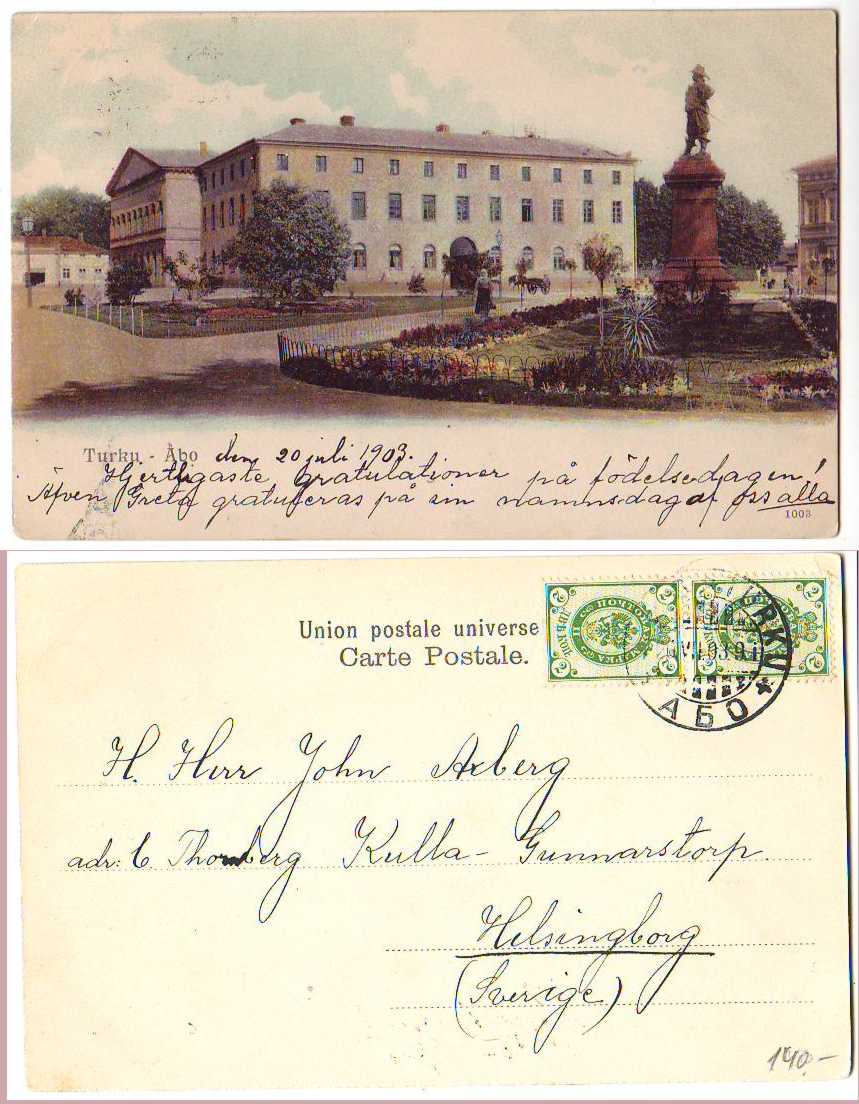 Turku - Åbo den 20 juli 1903.
Hjertligaste gratulationer på födelsedagen!
Äfven Greta gratuleras på sin namnsdag af oss alla
1003
Union postale universe
Carte Postale.
2 ПОЧТОВАЯ 2
TURKU
VII 03 9
АБО
H. Herr John Axberg
adr: C. Thornberg Kulla- Gunnarstorp.
Helsingborg
(Sverige)
140.-